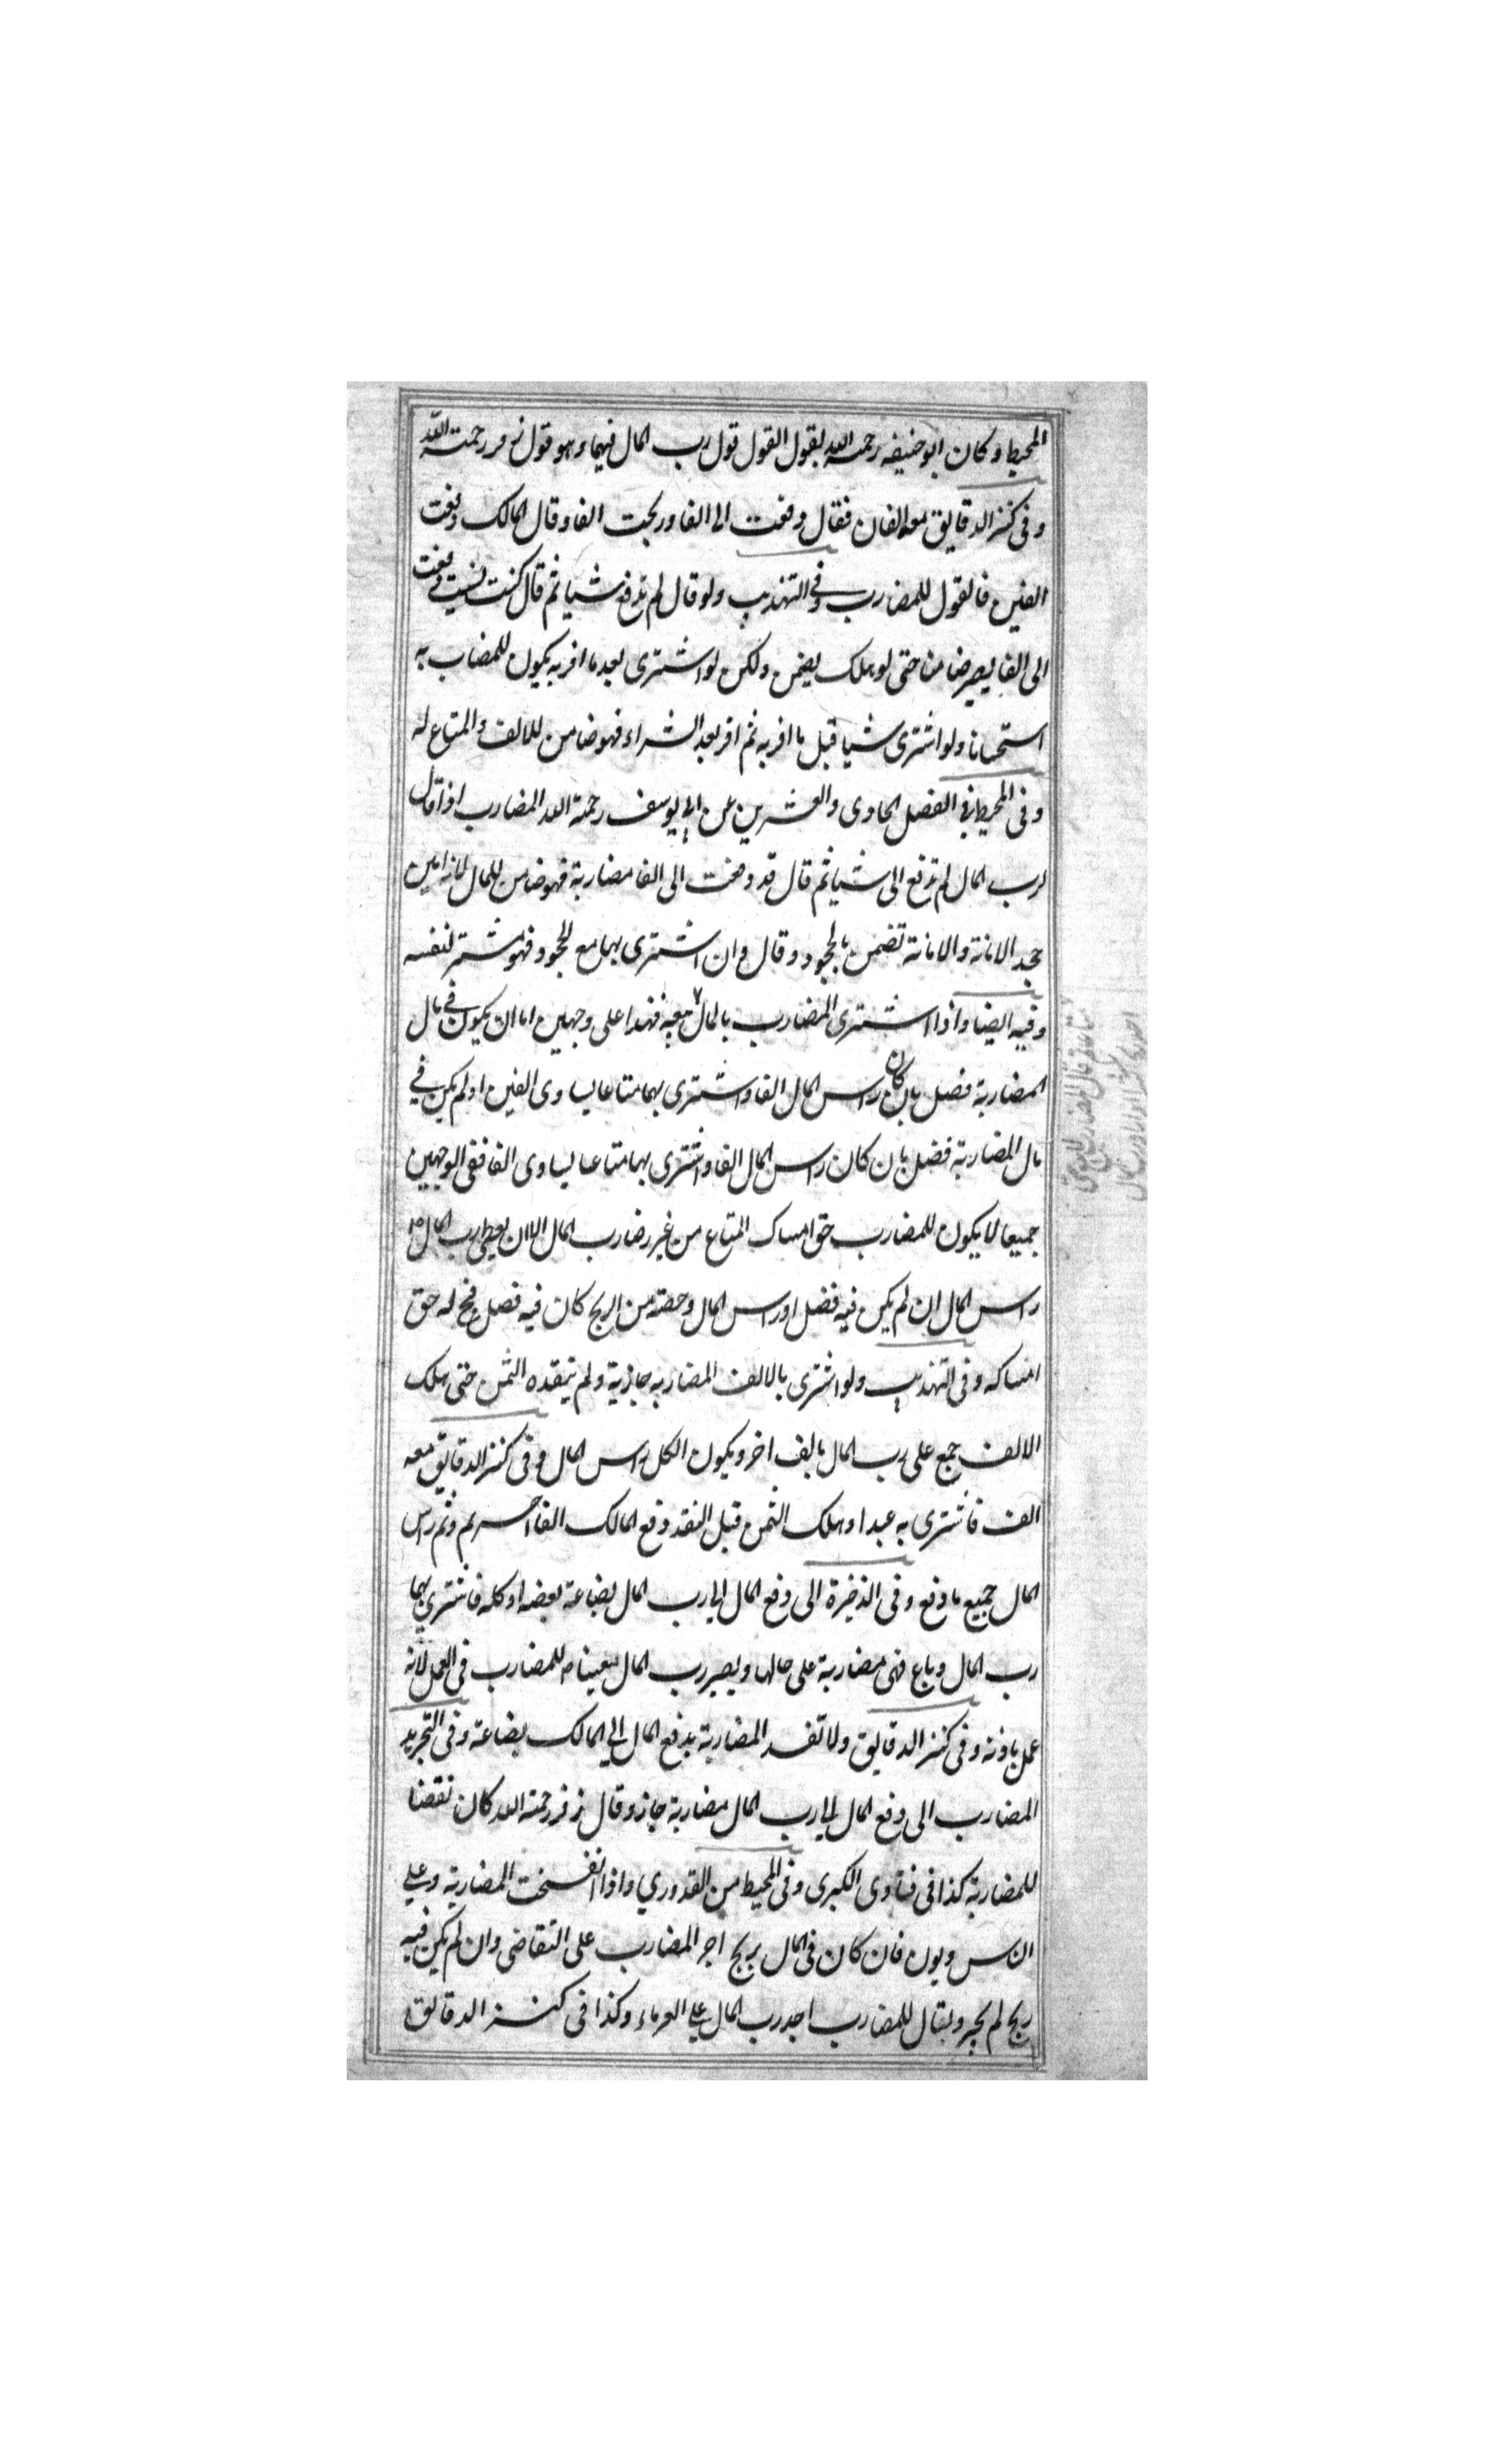 المحيط وكان ابو حنيفه رحمة الله يقول القول قول رب المال فيهما وهو قول زفر رحمة الله
وفى كنز الدقايق معه الفان فقال دفعت الى الفا وربحت الفا وقال المالك دفعت
الفين فالقول للمضارب وفى التهذيب ولو قال لم تدفع شيا ثم قال كنت نسيت دفعت
الى الفا يصير ضامنا حتى لو هلك يضمن ولكن لو اشترى بعد ما اقر به يكون للمضاب به
استحسانا ولو اشترى شيا قبل ما اقر به ثم اقر بعد الشراء فهو ضامن للالف والمتاع له
وفى المحيط في الفصل الحادى والعشرين عن ابي يوسف رحمة الله المضارب اذا قال
لرب المال لم تدفع الى شيا ثم قال قد دفعت الى الفا مضاربة فهو ضامن للمال لانه امين
جحد الامانة والامانة تضمن بالجحود وقال وان اشترى بها مع الجحود فهو مشتر لنفسه
وفيه ايضا واذا اشترى المضارب بالمال فهذا على وجهين اما ان يكون في مال
المضاربة فضل بان كان راس المال الفا واشترى بها متاعا يساوى الفين او لم يكن في
مال المضاربة فضل بان كان راس المال الفا واشترى بها متاعا يساوى الفا ففى الوجهين
جميعا لا يكون للمضارب حق امساك المتاع من غير رضا رب المال الا ان يعطى رب المال
راس المال ان لم يكن فيه فضل او راس المال وحصته من الربح كان فيه فضل فح له حق
امساكه وفى التهذيب ولو اشترى بالالف المضاربه جارية ولم ينقده الثمن حتى هلك
الالف جمع على رب المال بالف اخر ويكون الكل راس المال وفى كنز الدقايق معه
الف فاشترى به عبدا وهلك الثمن قبل النقد دفع المالك الفا اخر ثم وثم راس
المال جميع ما دفع وفى الذخيرة الى دفع المال الى رب المال بضاعة بعضه او كله فاشترى بها
رب المال وباع فهى مضاربة على حالها ويصير رب المال معينا للمضارب فى العمل لانه
عمل باذنه وفى كنز الدقايق ولا تفسد المضاربة بدفع المال الى المالك بضاعة وفى التجريد
المضارب الى دفع المال الى رب المال مضاربة جاز وقال زفر رحمة الله كان نقضا
للمضاربة كذا فى فتاوى الكبرى وفى المحيط من القدوري واذا انفسخت المضاربة وعلى
الناس ديون فان كان فى المال ربح اجر المضارب على التقاضى وان لم يكن فيه
ربح لم يجبر ويقال للمضارب احد رب المال على الغرماء وكذا فى كنز الدقايق